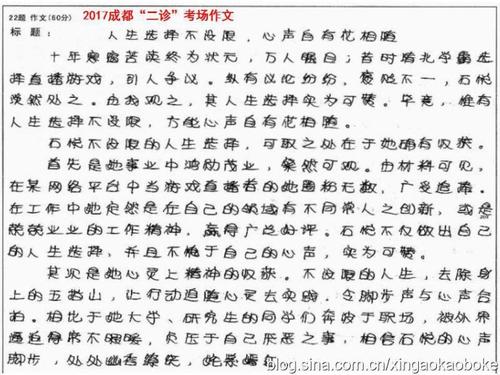 22题 作文(60分) 2017成都“二诊”考场作文
标 题: 人生选择不设限,心声自有花相随
十年寒窗苦读终为状元,万人瞩目;昔时有北学霸选
择直播游戏,引人争议。纵有议论纷纷,褒贬不一,石悦
淡然处之。由我观之,其人生选择实为可赞。毕竟,唯有
人生选择不设限,方能心声自有花相随。
石悦不设限的人生选择,可取之处在于她确有收获。
首先是她事业中鸿勋茂业,粲然可观。由材料可见,
在某网络平台中当游戏直播者的她圈粉无数,广受追捧。
在工作中她定然是在自己的领域有不同常人之创新,或是
兢兢业业的工作精神,赢得广泛好评。石悦不仅做出自己
的人生选择,并且不愧于自己的心声,实为可赞。
其次是她心灵上精神的收获。不设限的人生,去除身
上的五指山,让行动追随心灵去实践,令脚步与心声合
拍。相比于她大学、研究生的同学们奔波于职场,被外界
逼迫得常不暇暖,负压于自己厌恶之事,相合石悦的心声
脚步,处处幽香
blog.sina.com.cn/xingaokaoboke